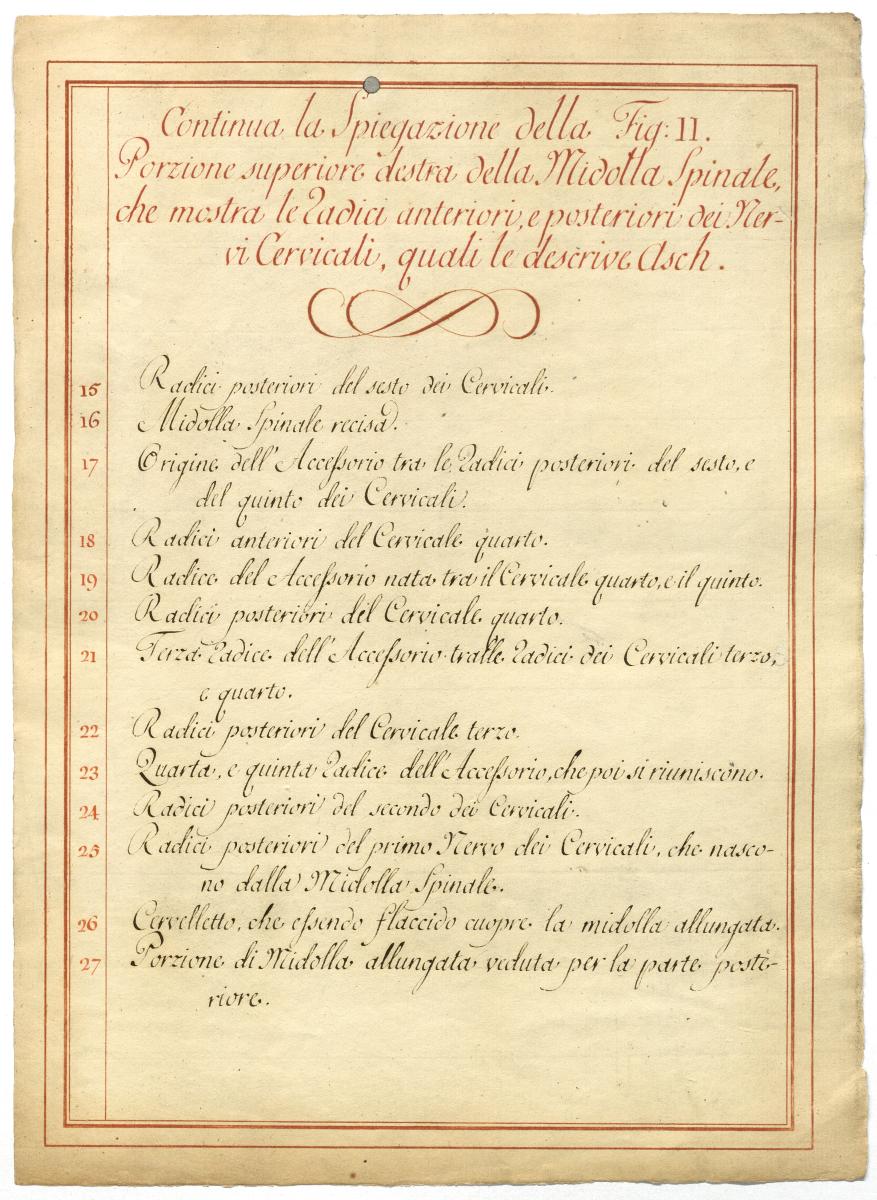 Continua la Spiegazione della Fig: 11.
Porzione superiore destra della Midolla Spinale,
che mostra le Radici anteriori, e posteriori dei Ner-
vi Cervicali, quali le descrive Asch.
15 Radici posteriori del sesto dei Cervicali.
16 Midolla Spinale recisa.
17 Origine dell'Accessorio tra le Radici posteriori del sesto, e
del quinto dei Cervicali.
18 Radici anteriori del Cervicale quarto.
19 Radice del Accessorio nata tra il Cervicale quarto, e il quinto.
20 Radici posteriori del Cervicale quarto.
21 Terza Radice dell'Accessorio tralle Radici dei Cervicali terzo,
e quarto.
22 Radici posteriori del Cervicale terzo.
23 Quarta, e quinta Radice dell'Accessorio, che poi si riuniscono.
24 Radici posteriori del secondo dei Cervicali.
25 Radici posteriori del primo Nervo dei Cervicali, che nasco-
no dalla Midolla Spinale.
26 Cervelletto, che essendo flaccido cuopre la midolla allungata.
27 Porzione di Midolla allungata veduta per la parte poste-
riore.